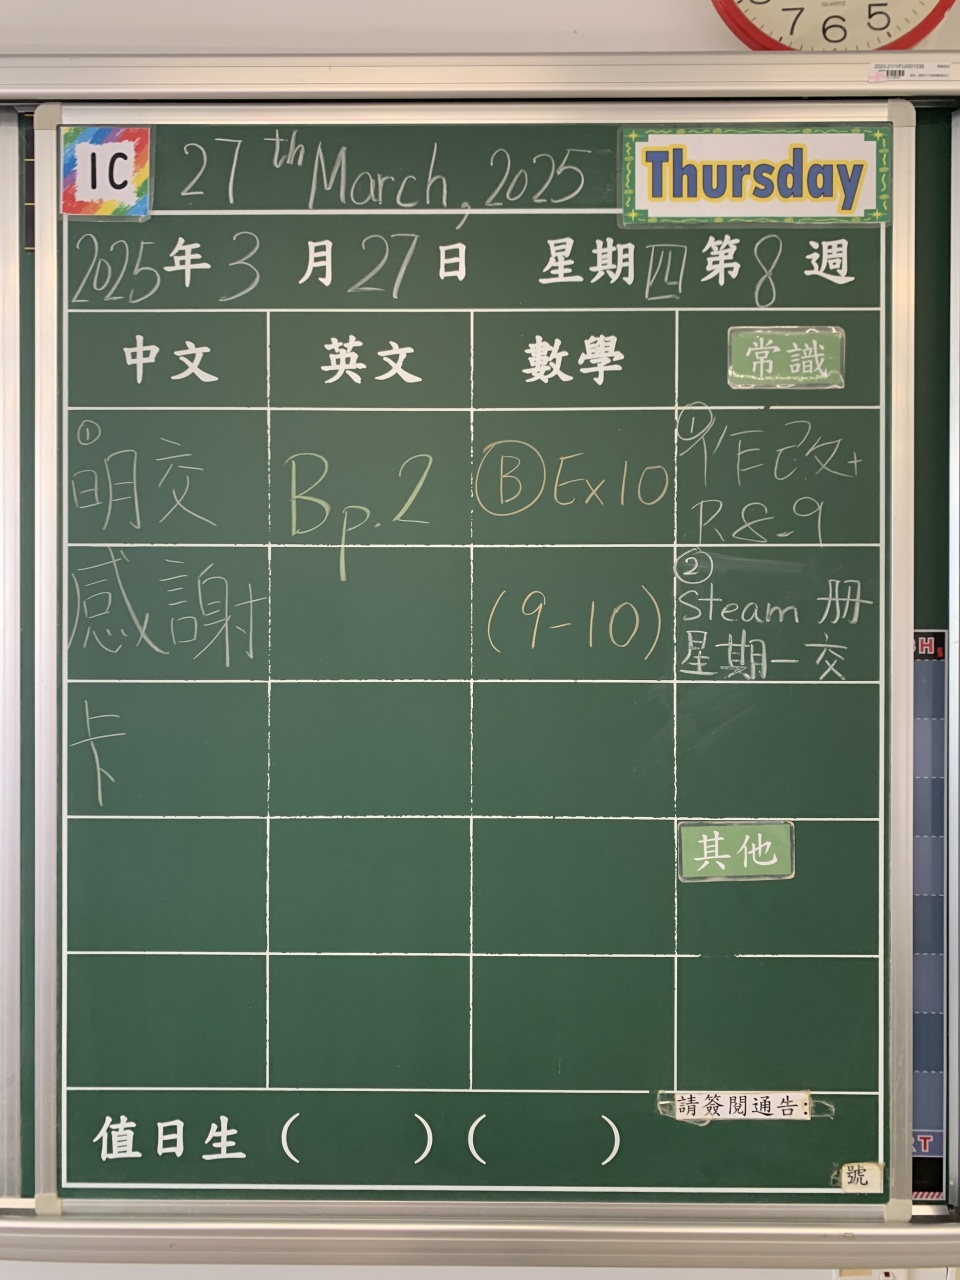 7 6 5
QUARTZ
1C 27th March, 2025 Thursday
2025年3月27日 星期四 第8週
中文 英文 數學 常識
①明交 Bp.2 ⒷEx10 ①作改+
R8-9
感謝 (9-10) ②
Steam 册
星期一交
卡
其他
請簽閱通告:
值日生 ( ) ( )
號